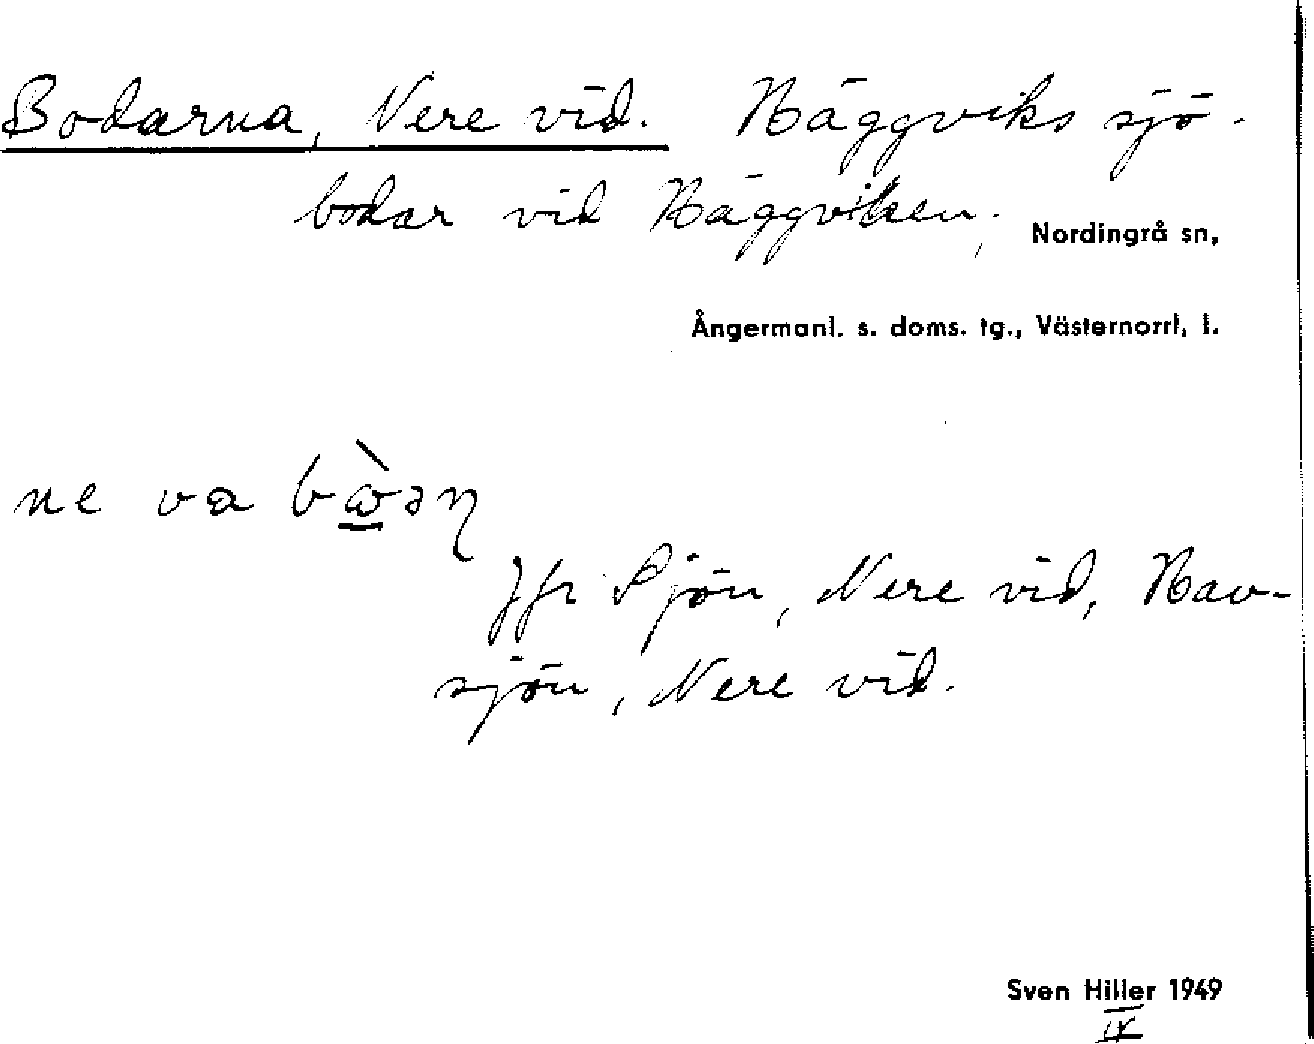 Bodarna, Nere vid. Häggviks sjö-
bodar vid Häggviken, Nordingrå sn,
Ångermanl. s. doms. tg., Västernorrl. l.
ne va
Jfr Sjön, Nere vid, Hav-
sjön, Nere vid.
Sven Hiller 1949
IV